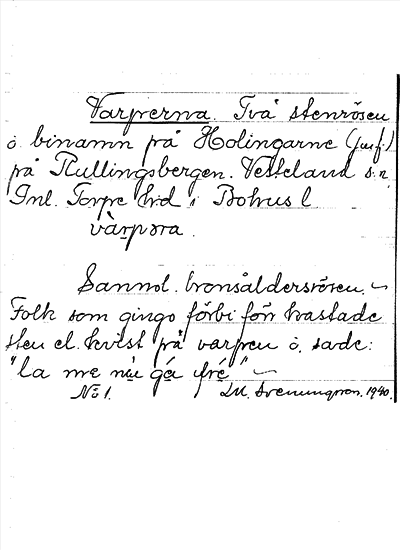 Varperna. Två stenrösen
o. binamn på Holingarne (jmf.)
på Kullingsbergen. Vetteland s:n,
Inl. Torpe h:d i Bohus l
vàrpəra.
Sannol. bronsåldersrösen.
Folk som gingo förbi förr kastade
sten el. kvist på varpen o. sade:
"la me nu gå fré"
No 1. LM. Svenungsson. 1940.